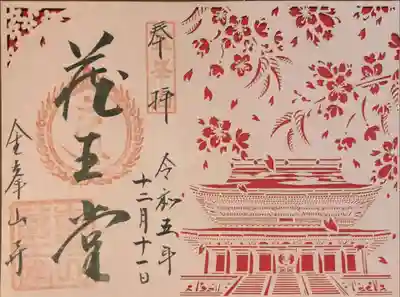 奉拝
令和五年
十二月十一日
蔵王堂
金峯山寺